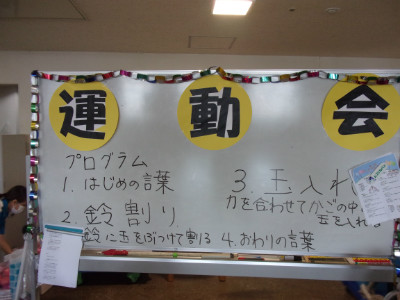 運動会
プログラム
1. はじめの言葉
2. 鈴割り
鈴に玉をぶつけて割る
3. 玉入れ
力を合わせてかごの中
玉を入れる
4. おわりの言葉